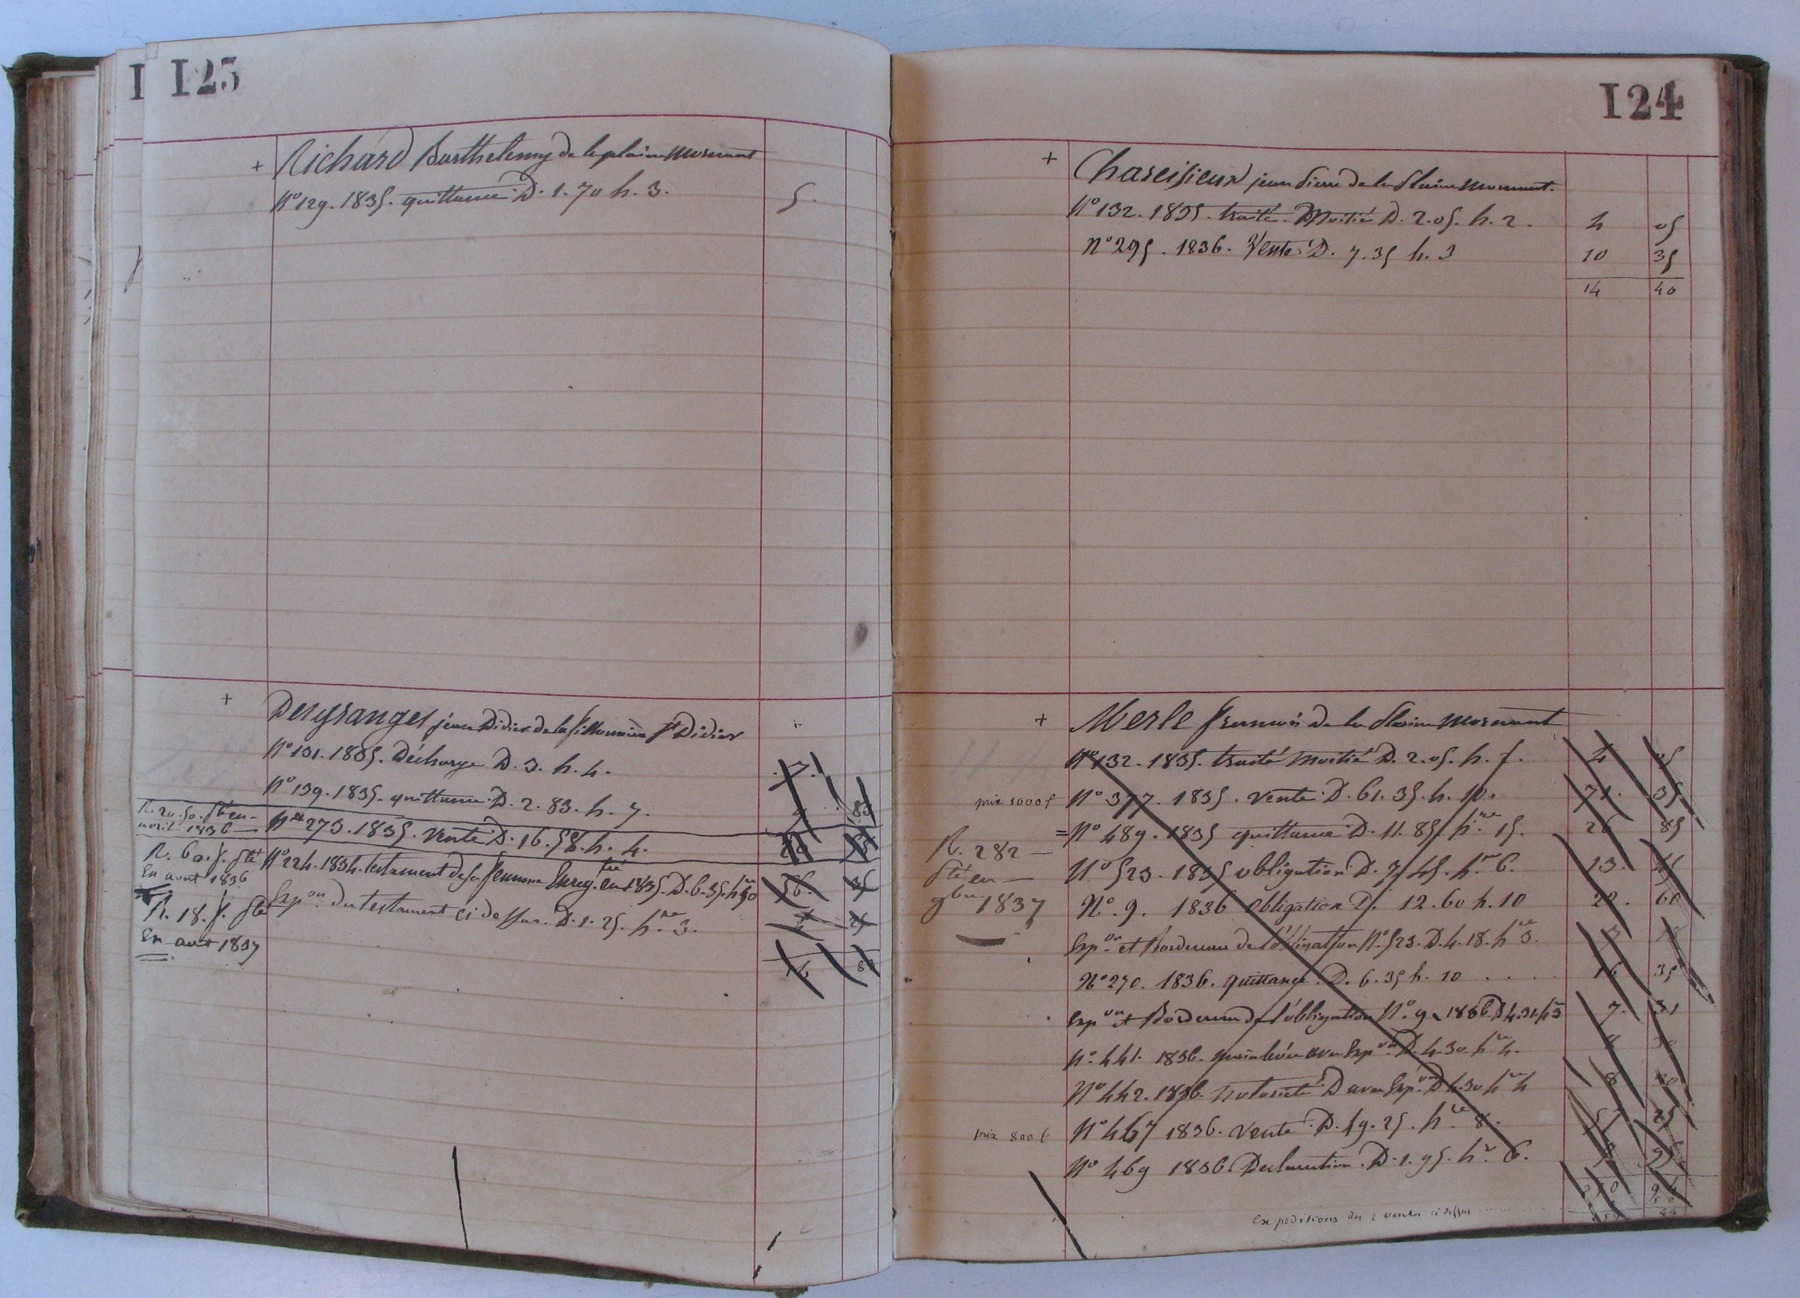 123
+ Richard Barthelemy de la plaine Mornant
N° 129. 1835. quittance D. 1. 70 h. 3. 5.
+ Desgranges jean Didier de la St Didier
N° 131. 1835. Décharge D. 3. h. 4. 7.
N° 139. 1835. quittance D. 2. 83. h. 7. 83
R. 20. 50. Sté en avril 1836
N° 273. 1835. Vente D. 16. 58. h. 4.
R. 60. f. Sté En avril 1836
N° 224. 1834. testament de sa femme Enreg. en 1835. D. 6. 35. h
R. 18. f. Sté En avril 1837
Exp.on du testament ci dessus. D. 1. 25. h.re 3.
124
+ jean Pierre de la Plaine Mornant.
N° 132. 1835. traité Moitié D. 2. 05. h. 2. 4 05
N° 295. 1836. Vente D. 7. 35 h. 3 10 35
14 40
+ Merle francois de la Plaine Mornant
N° 132. 1835. traité moitié D. 2. 05. h. 4 05
prix 1000 f N° 377. 1835. Vente D. 61. 35. h. 10. 71. 35
N° 489. 1835 quittance D. 11. 85. h.re 15. 26 85
R. 282
Sté en
9bre 1837
N° 523. 1835 obligation D. 7. 45. h.re 6. 13. 45
N°. 9. 1836 obligation D. 12. 60 h. 10 22. 60
Exp.on et Bordereau de l'obligation N° 523. D. 4. 18. h.re 3. 7
N° 270. 1836. quittance D. 6. 35 h. 10 16 35
Exp.on et Bordereau de l'obligation N°. 9. 1836 D. 4. 31. h.re 3 7. 31
N°. 441. 1836. avec Exp.on D. 4. 30. h.re 4.
N° 442. 1836. notoriété D avec Exp.on D. 4. 30 h.re 4 8
prix 800 f N° 467 1836. Vente D. 49. 25. h.re 8. 57 25
N° 469 1836. Declaration D. 1. 95. h.re 6.
Expeditions des 2 ventes ci dessus